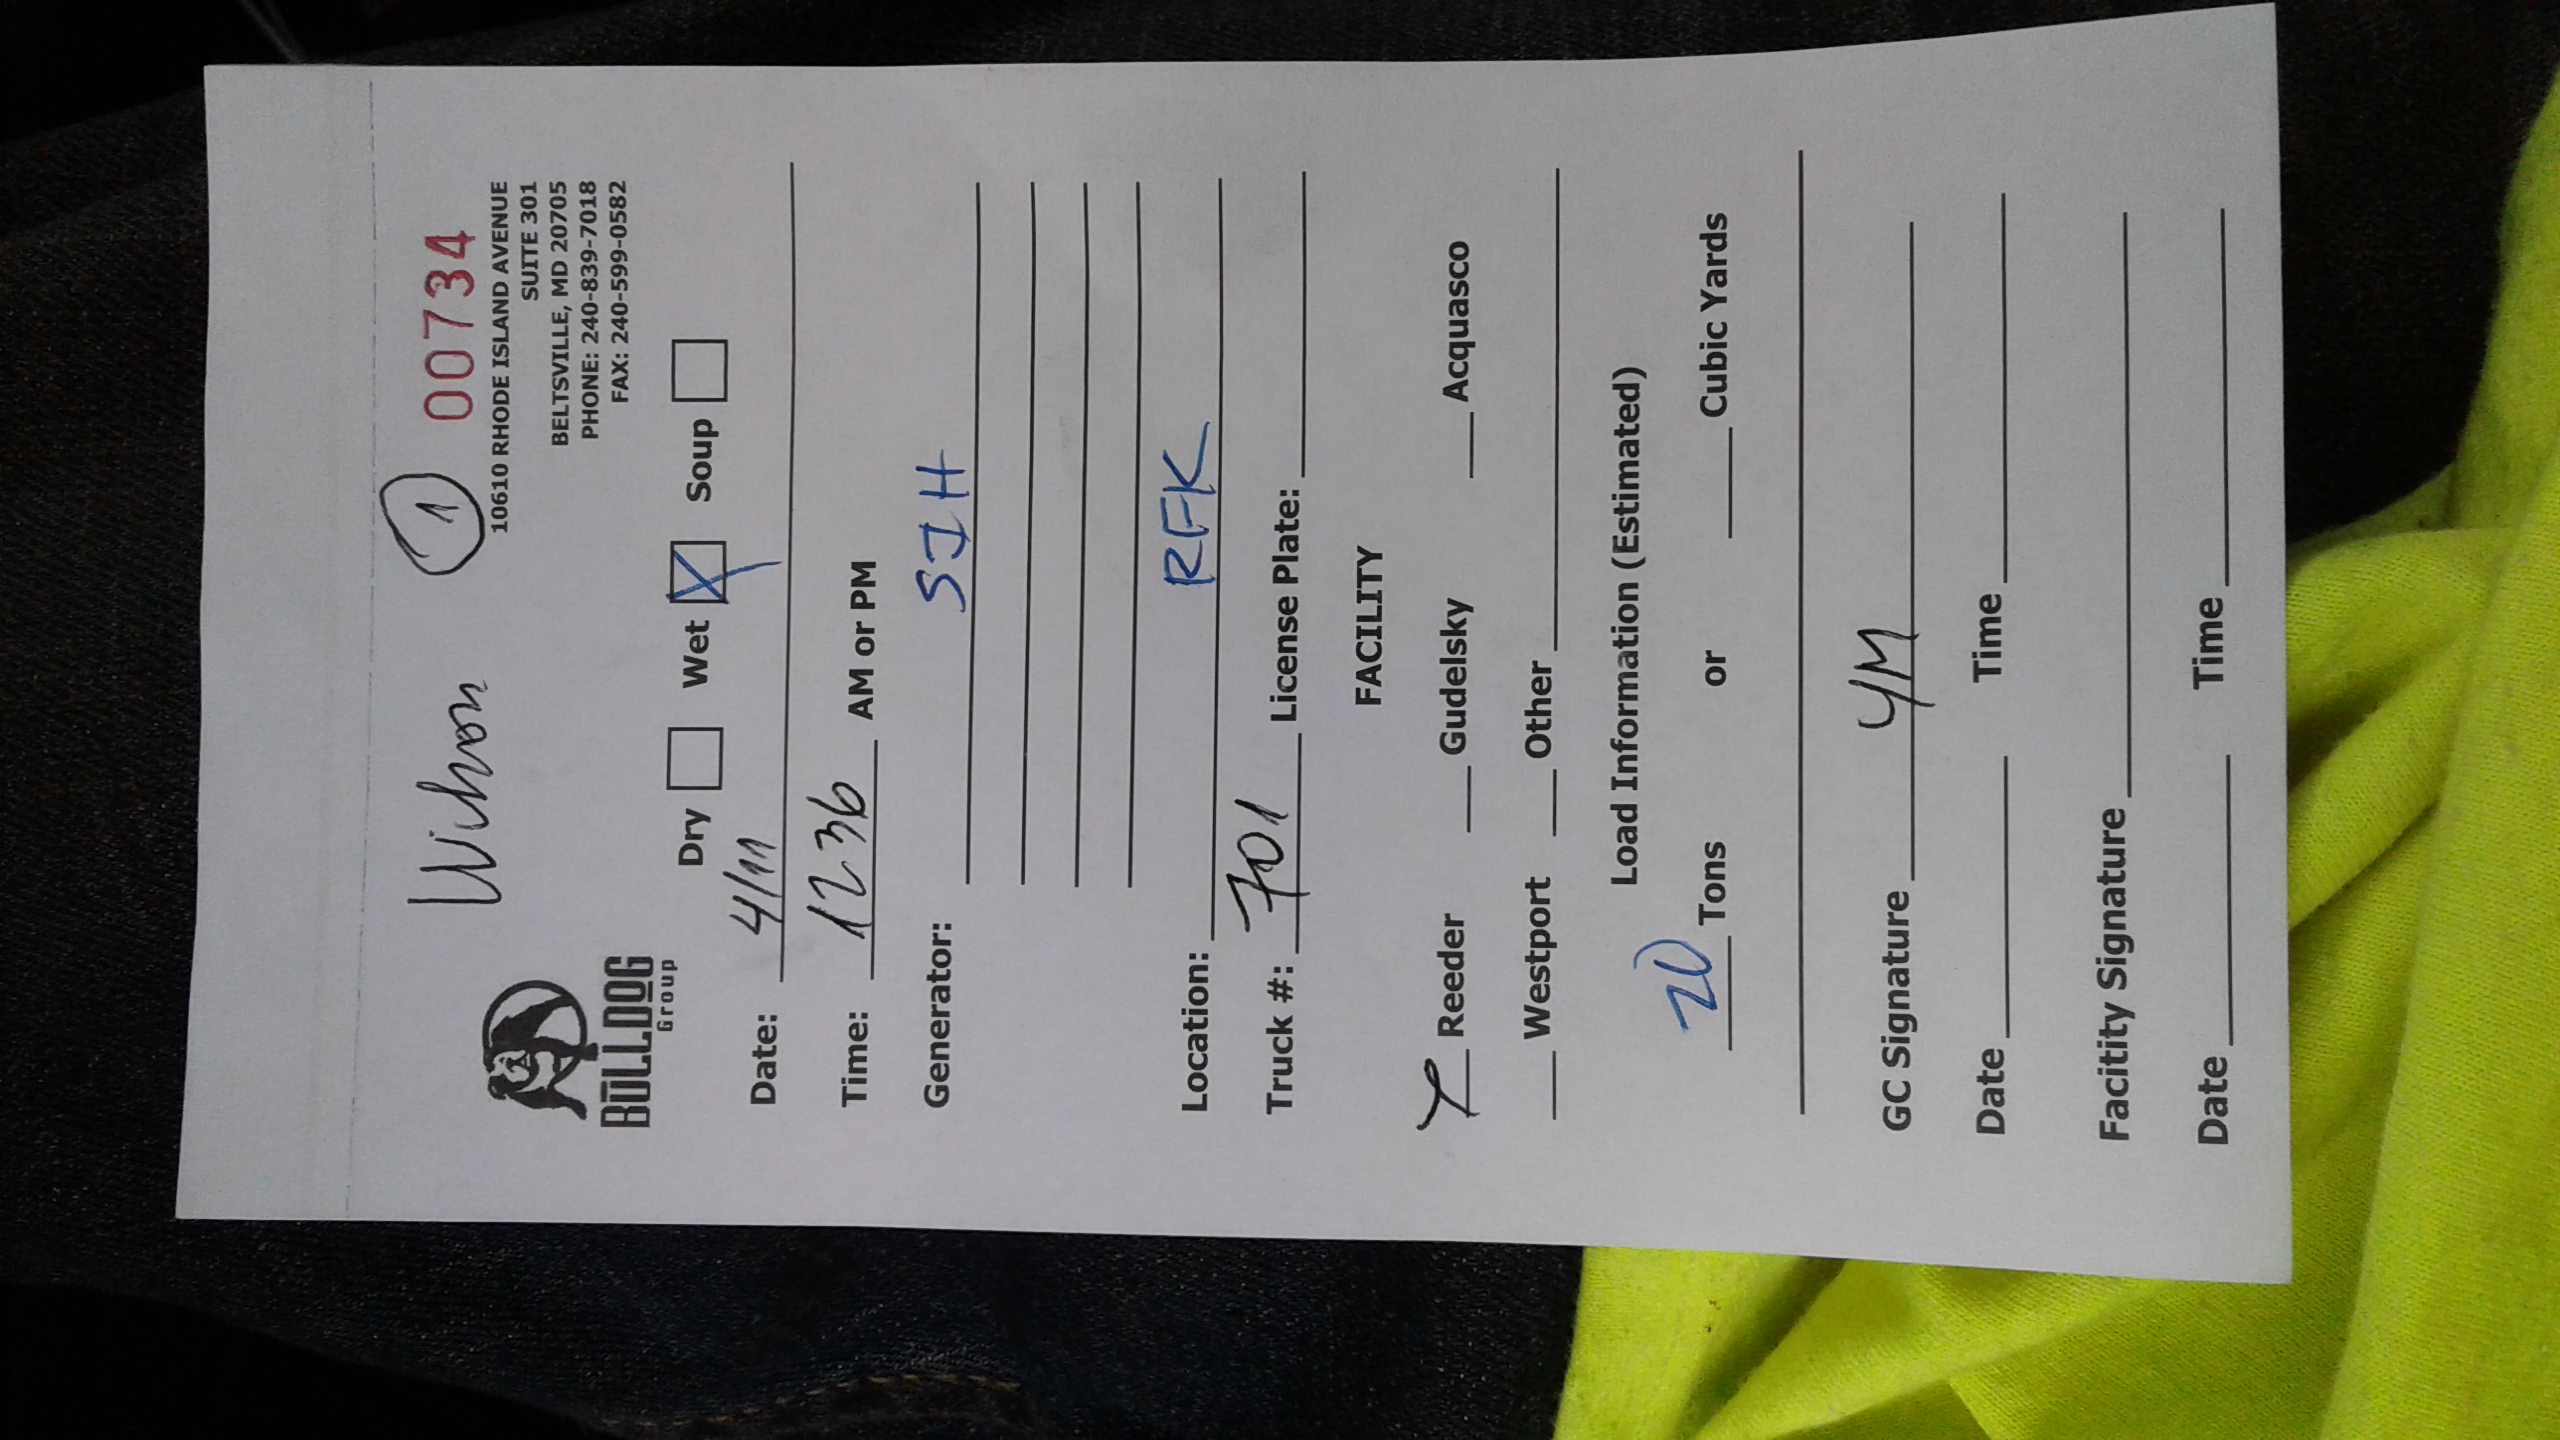 Wilson 1 00734
10610 RHODE ISLAND AVENUE
SUITE 301
BELTSVILLE, MD 20705
PHONE: 240-839-7018
FAX: 240-599-0582
BULLDOG
Group
Dry Wet X Soup
Date: 4/11
Time: 1236 AM or PM
Generator: SIH
Location: RFK
Truck #: 701 License Plate:
FACILITY
Reeder Gudelsky Acquasco
Westport Other
Load Information (Estimated)
20 Tons or Cubic Yards
GC Signature YM
Date Time
Facitity Signature
Date Time